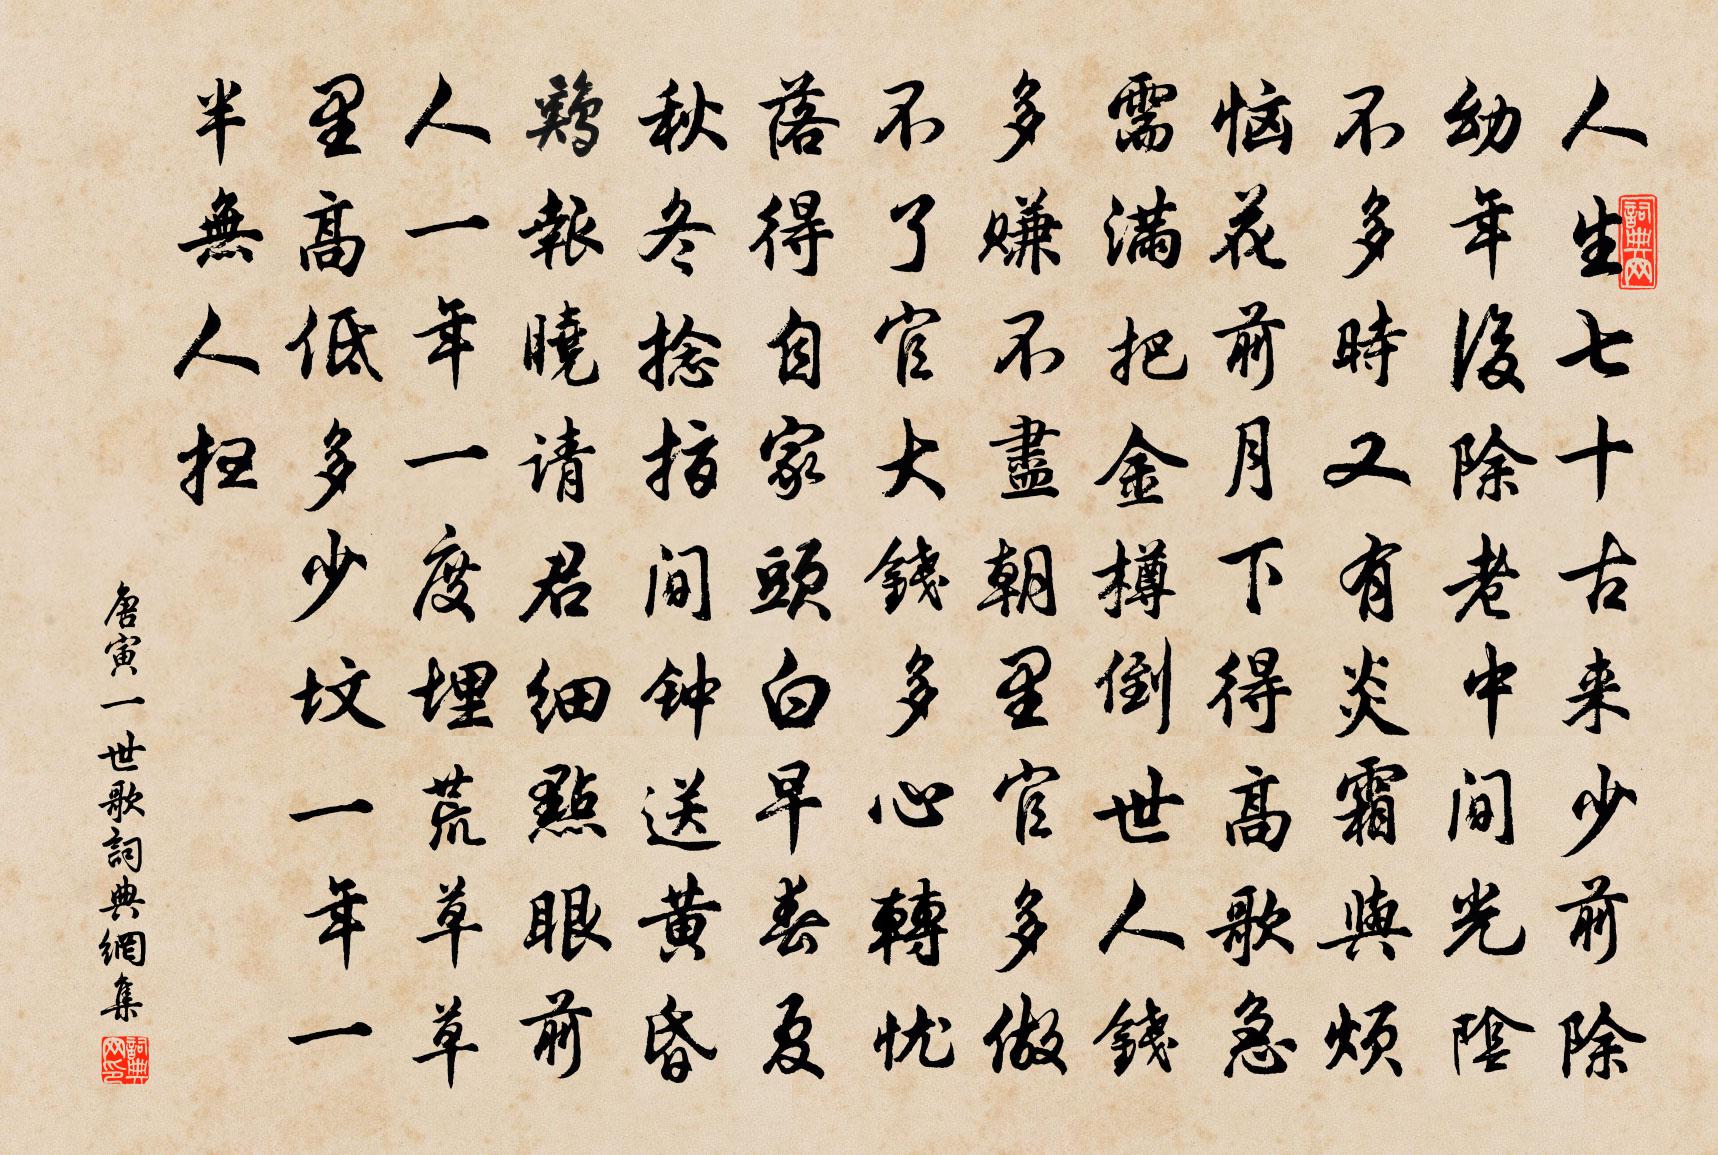 人生七十古来少前除
幼年後除老中间光陰
不多時又有炎霜與煩
恼花前月下得高歌急
需满把金樽倒世人錢
多赚不盡朝里官多做
不了官大錢多心轉忧
落得自家頭白早春夏
秋冬捻指间钟送黄昏
鷄報曉请君细點眼前
人一年一度埋荒草草
里高低多少坟一年一
半無人扫
唐寅一世歌詞典網集
詞典网
詞典网印